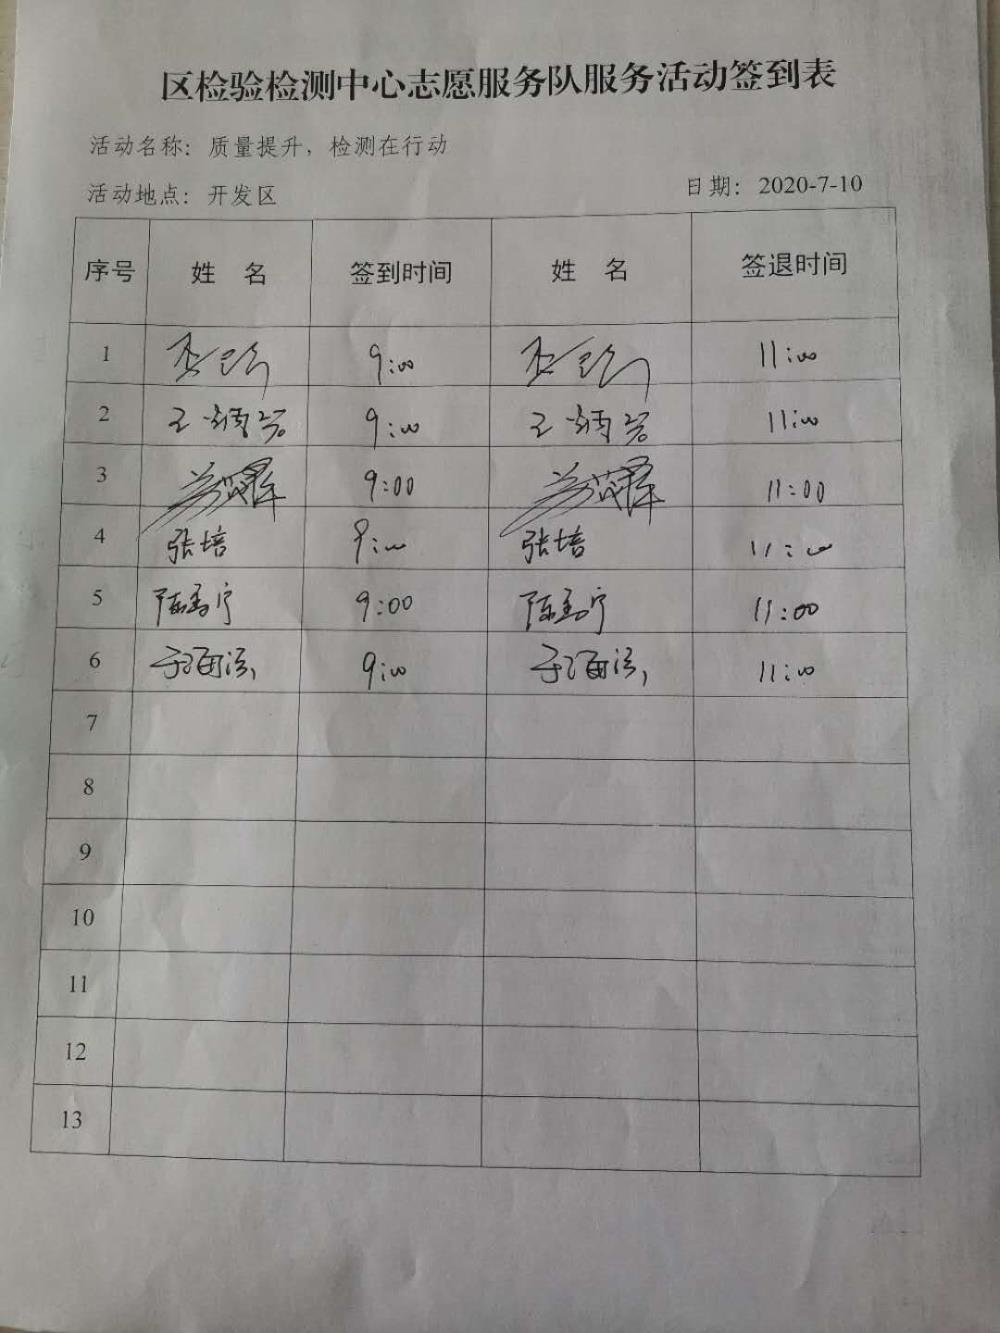 区检验检测中心志愿服务队服务活动签到表
活动名称：质量提升，检测在行动
活动地点：开发区 日期：2020-7-10
序号 姓 名 签到时间 姓 名 签退时间
1 9:00 11:00
2 王炳岩 9:00 王炳岩 11:00
3 9:00 11:00
4 张培 9:00 张培 11:00
5 9:00 11:00
6 9:00 11:00
7
8
9
10
11
12
13